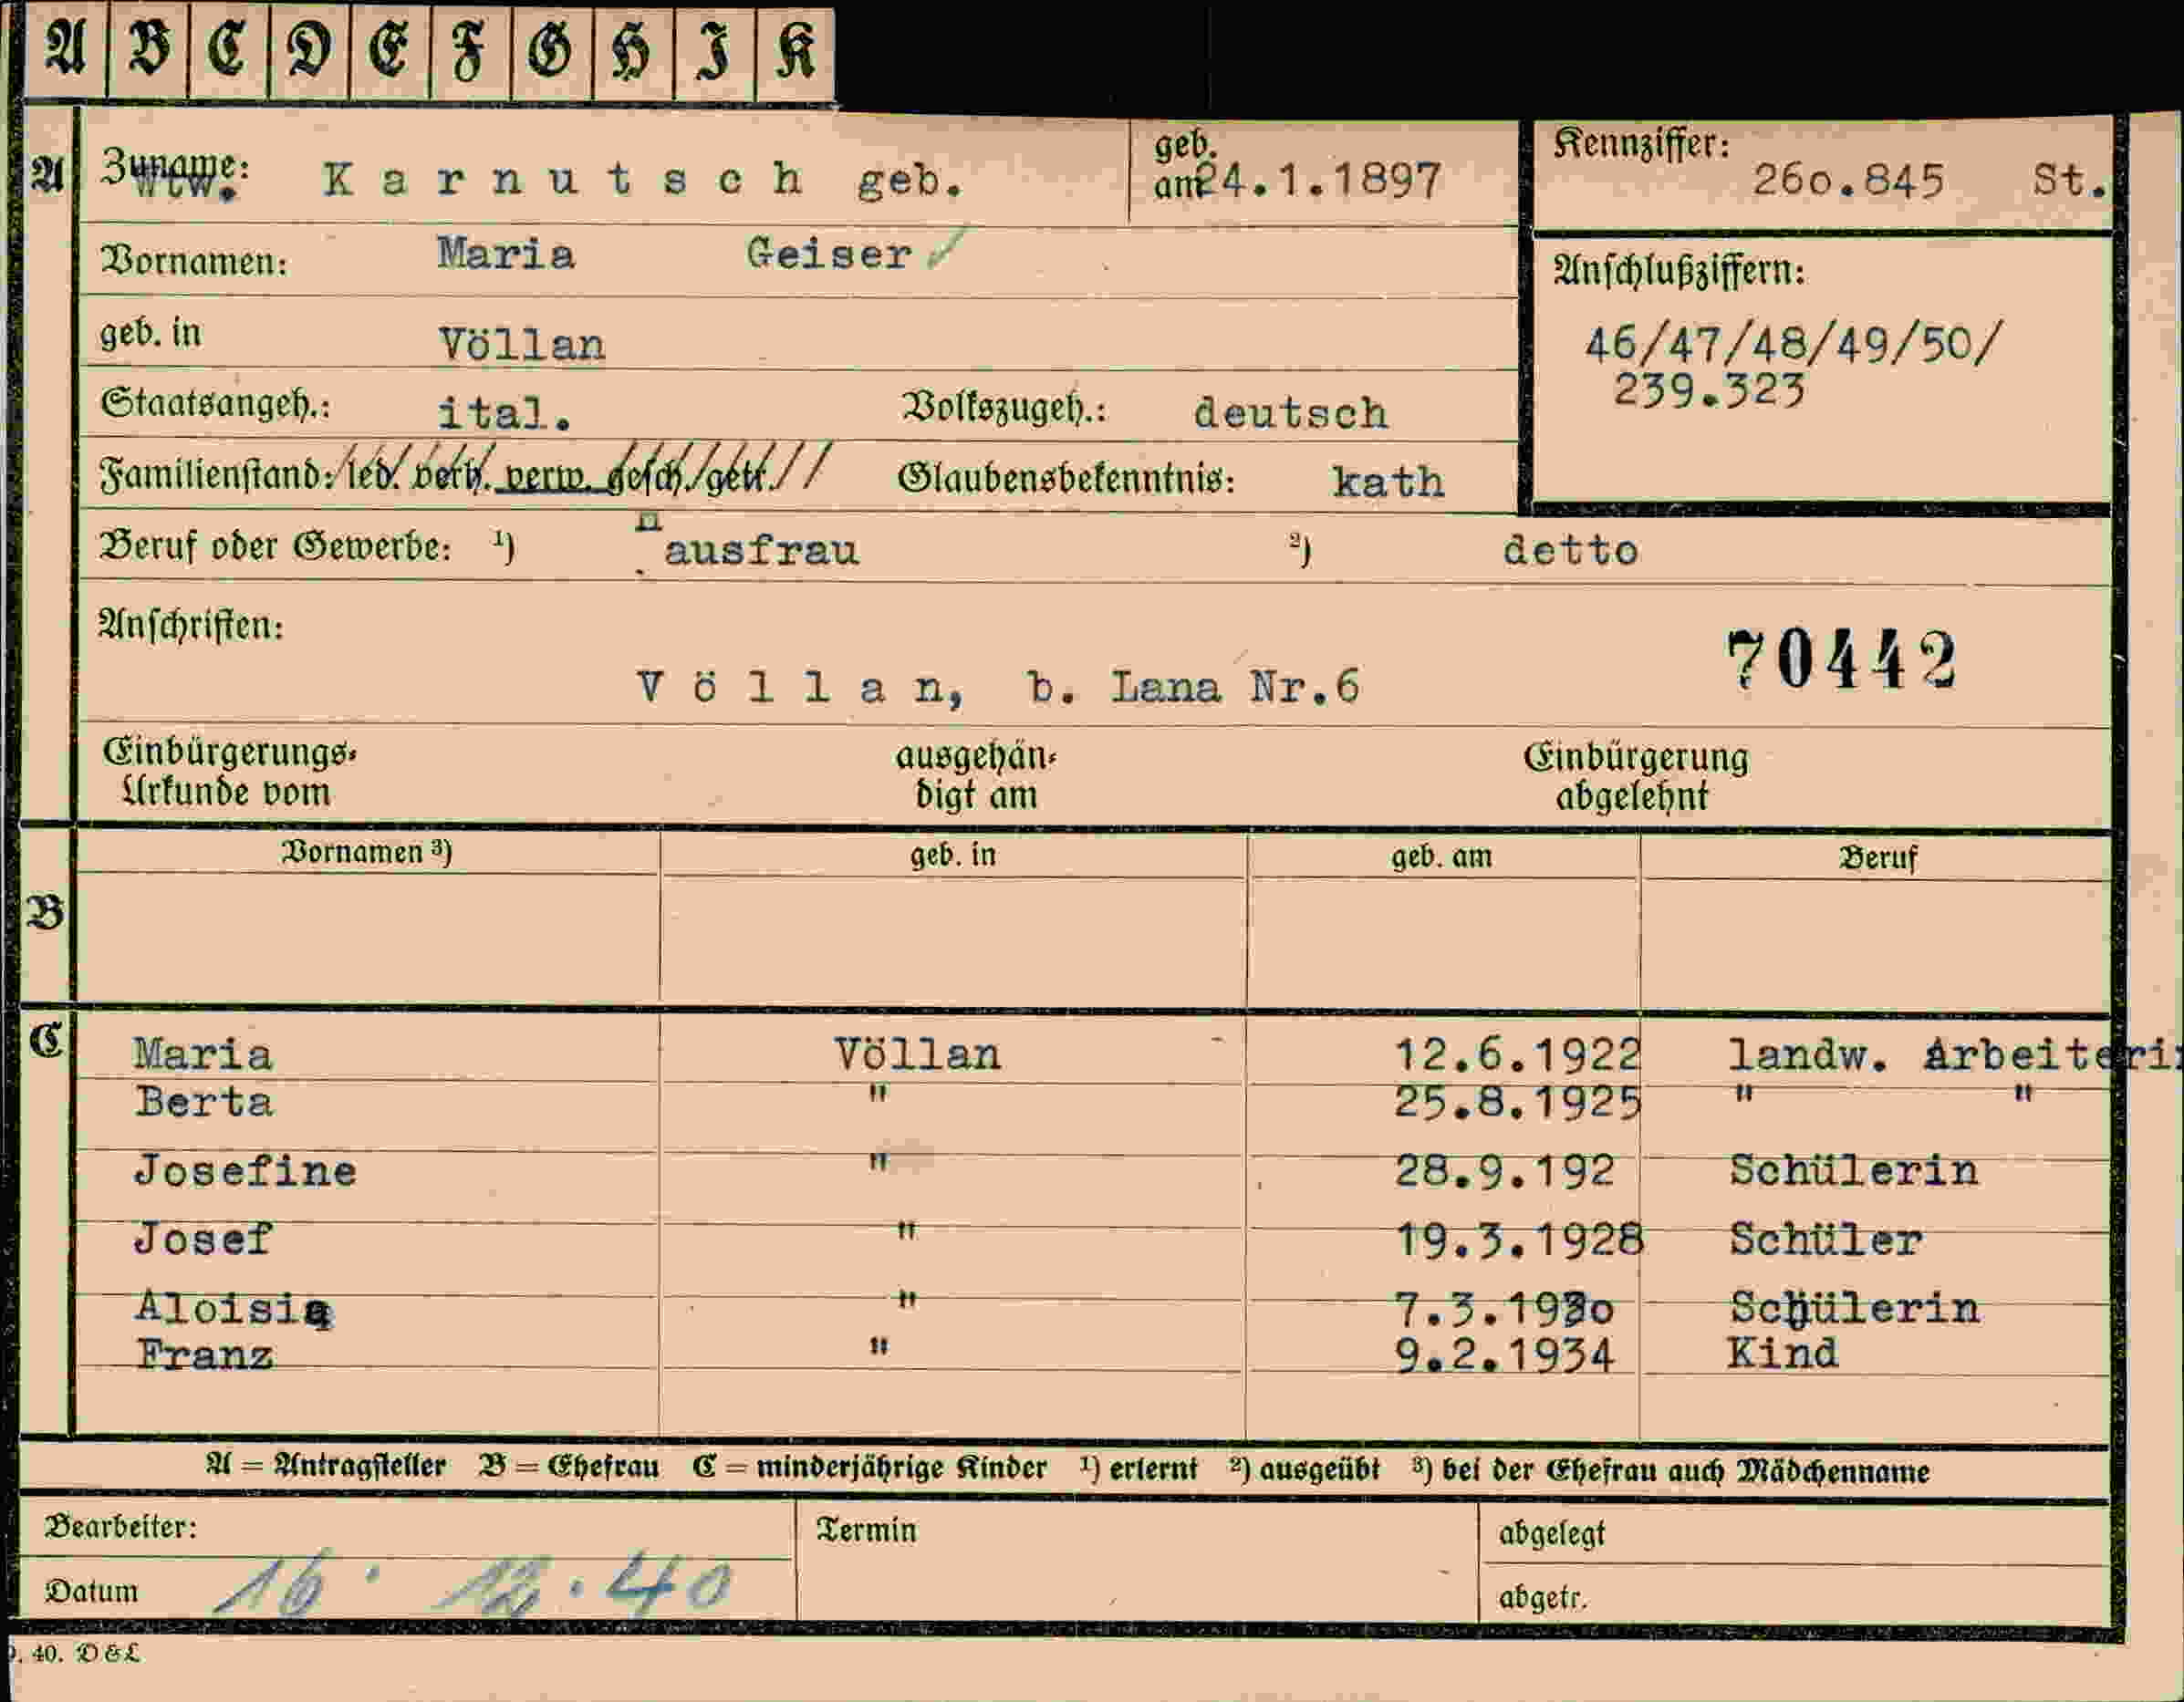 A B C D E F G H I K
A Zuname: Wtw. Karnutsch geb. geb. am 24.1.1897 Kennziffer: 26o.845 St.
Vornamen: Maria Geiser
Anschlußziffern:
geb. in Völlan 46/47/48/49/50/
239.323
Staatsangeh.: ital. Volkszugeh.: deutsch
Familienstand: led. verh. verw. gesch./getr. Glaubensbekenntnis: kath
Beruf oder Gewerbe: 1) Hausfrau 2) detto
Anschriften:
70442
Völlan, b. Lana Nr.6
Einbürgerungs- ausgehän- Einbürgerung
Urkunde vom digt am abgelehnt
Vornamen 3) geb. in geb. am Beruf
B
C Maria Völlan 12.6.1922 landw. Arbeiteri
Berta " 25.8.1925 " "
Josefine " 28.9.192 Schülerin
Josef " 19.3.1928 Schüler
Aloisia " 7.3.193o Schülerin
Franz " 9.2.1934 Kind
A = Antragsteller B = Ehefrau C = minderjährige Kinder 1) erlernt 2) ausgeübt 3) bei der Ehefrau auch Mädchenname
Bearbeiter: Termin abgelegt
Datum 16. 12. 40 abgetr.
. 40. D & L